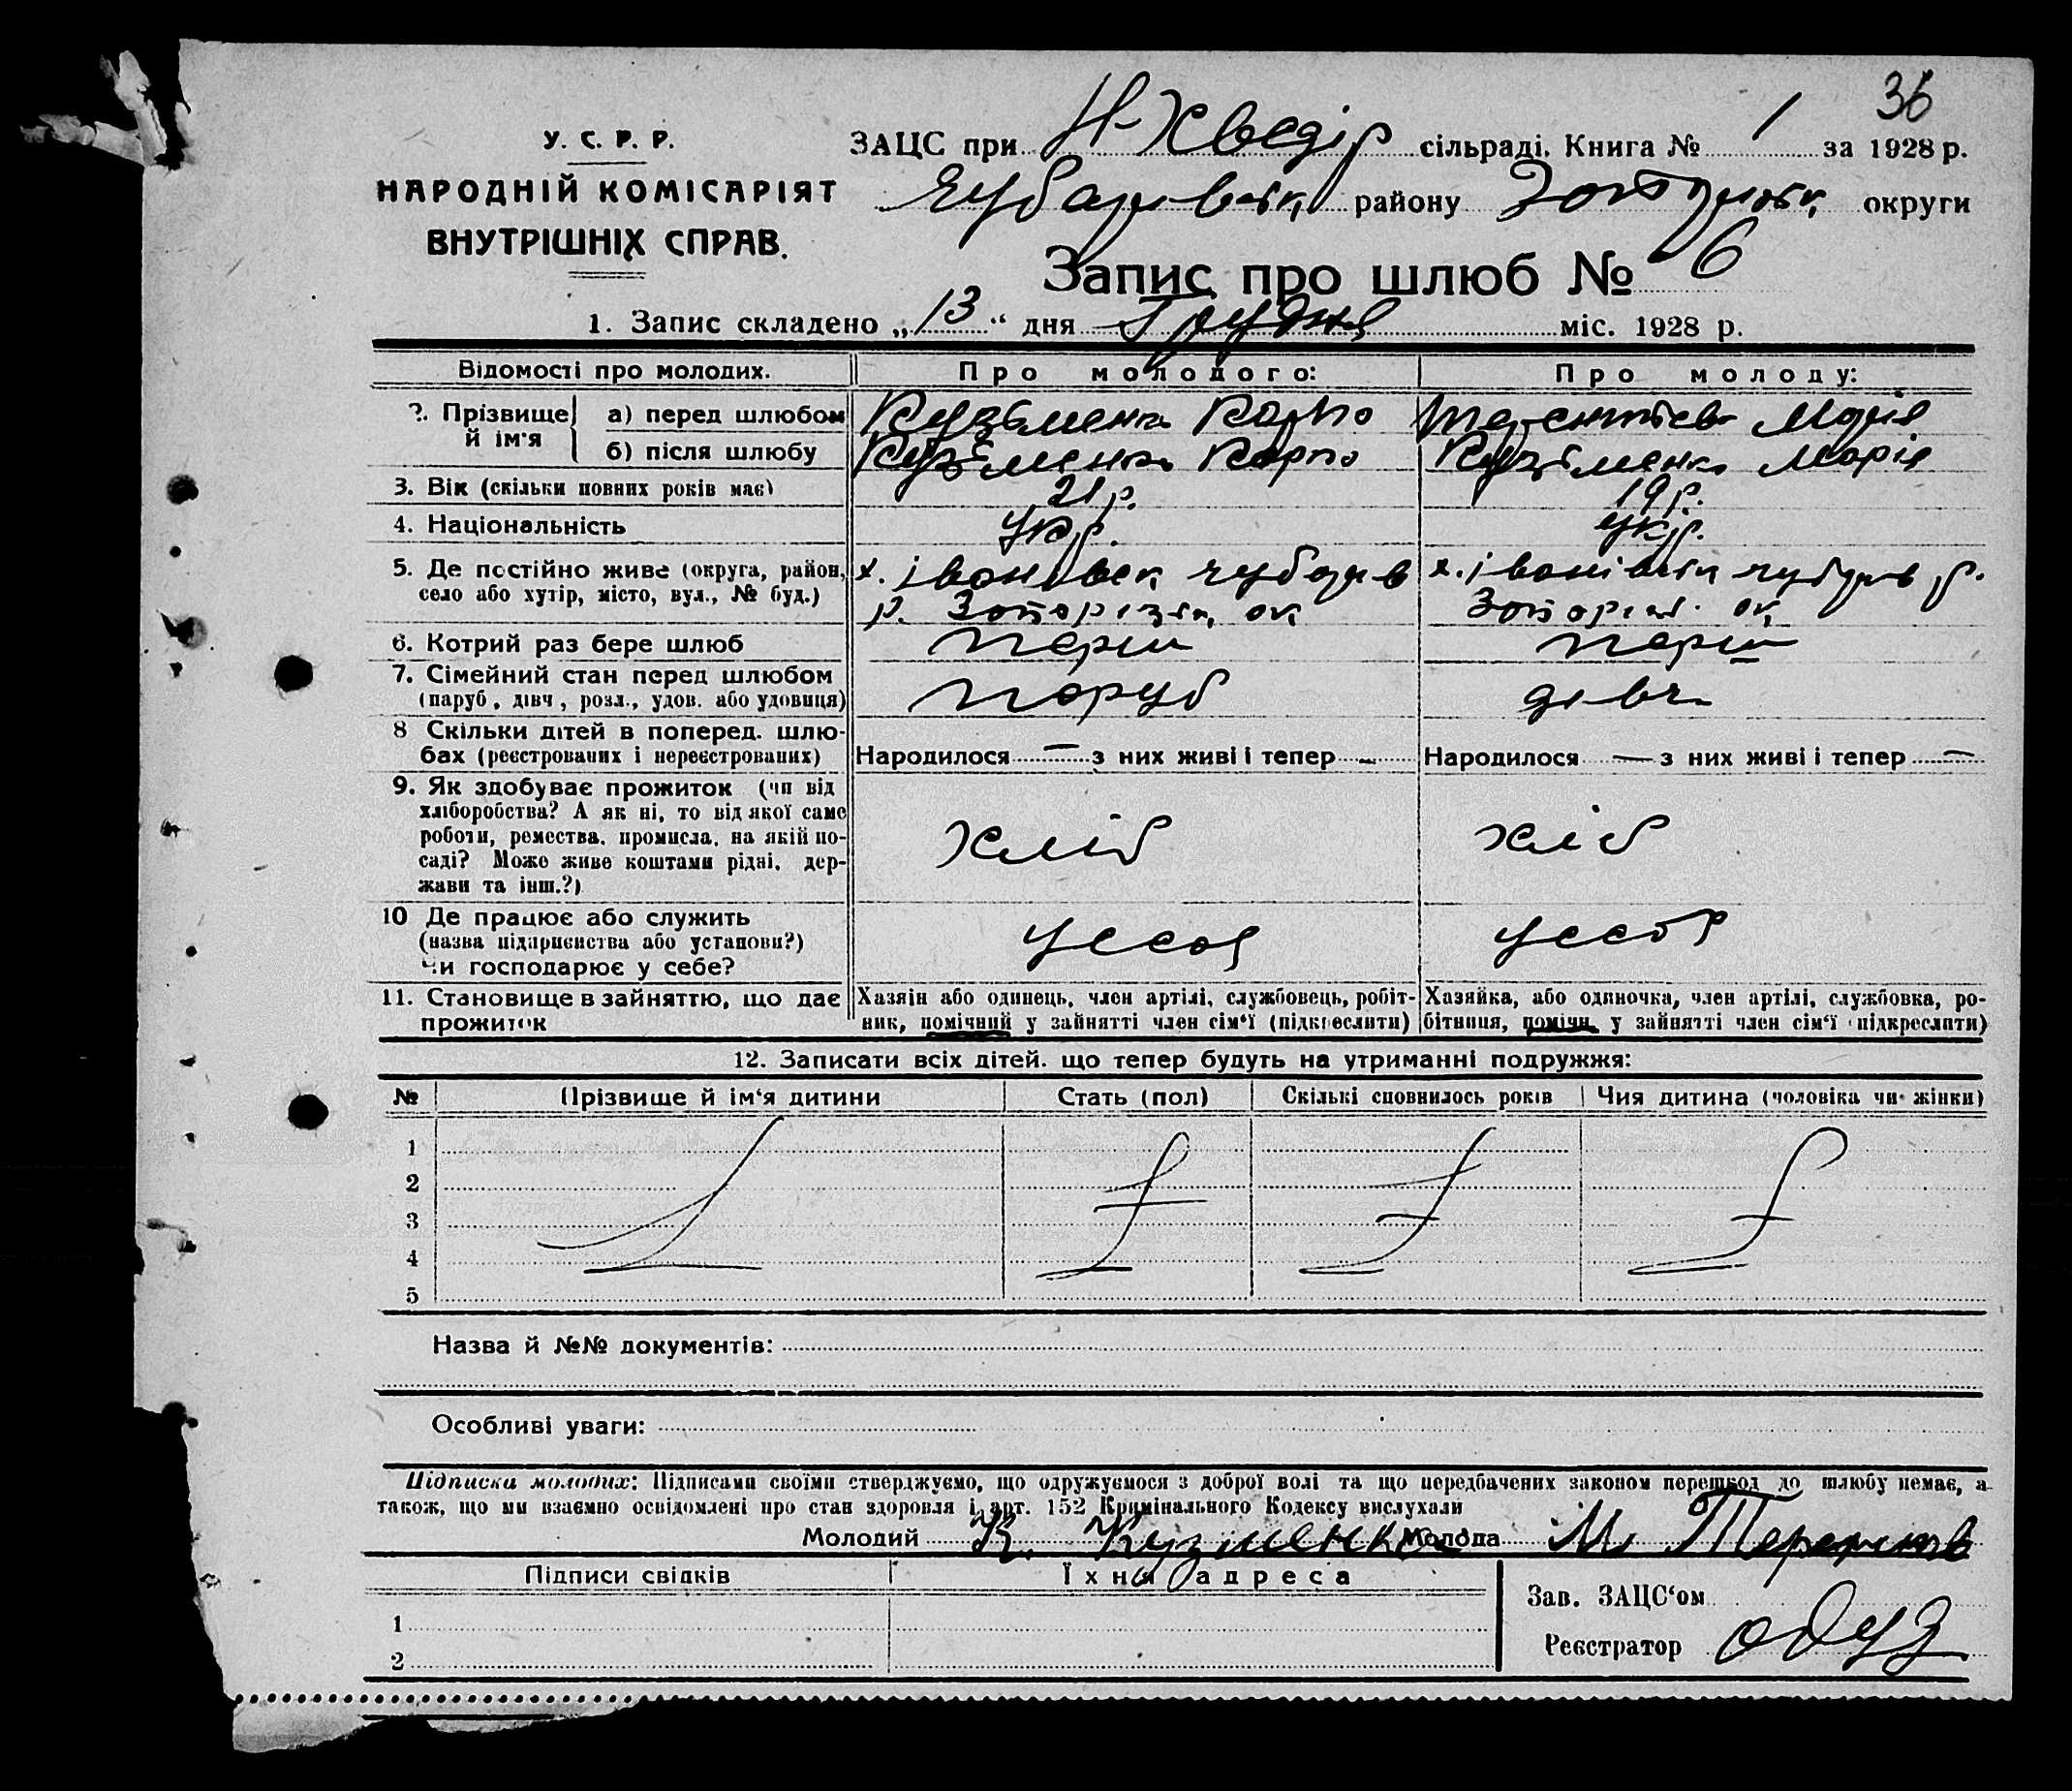 36
У. С. Р. Р.
НАРОДНІЙ КОМІСАРІЯТ
ВНУТРІШНІХ СПРАВ.
ЗАЦС при Н-Хведір сільраді. Книга № 1 за 1928 р.
району округи
Запис про шлюб № 6
1. Запис складено „13“ дня Грудня міс. 1928 р.
Відомості про молодих. Про молодого: Про молоду:
2. Прізвище й ім'я а) перед шлюбом Кузьменко Карпо Марія
б) після шлюбу Кузьменко Карпо Кузьменко Марія
3. Вік (скільки повних років має) 21 р. 19 р.
4. Національність Укр. укр.
5. Де постійно живе (округа, район, х. Іванівск чубарів х. Іванівськ чубарів р.
село або хутір, місто, вул., № буд.) р. Запорізьк. ок Запорізьк. ок
6. Котрий раз бере шлюб перш перш
7. Сімейний стан перед шлюбом
(паруб., дівч., розл., удов. або удовиця) паруб дівч.
8 Скільки дітей в поперед. шлю-
бах (реєстрованих і нереєстрованих) Народилося — з них живі і тепер — Народилося — з них живі і тепер —
9. Як здобуває прожиток (чи від
хліборобства? А як ні, то від якої саме
роботи, ремества, промисла, на якій по-
саді? Може живе коштами рідні, дер-
жави та інш.?) хліб хліб
10 Де працює або служить
(назва підприємства або установи?)
Чи господарює у себе? у себя у себя
11. Становище в зайняттю, що дає
прожиток
Хазяїн або одинець, член артілі, службовець, робіт-
ник, помічний у зайнятті член сім'ї (підкреслити)
Хазяйка, або одиночка, член артілі, службовка, ро-
бітниця, помічн. у зайнятті член сім'ї (підкреслити)
12. Записати всіх дітей, що тепер будуть на утриманні подружжя:
№ Прізвище й ім'я дитини Стать (пол) Скількі сповнилось років Чия дитина (чоловіка чи жінки)
1
2
3
4
5
Назва й №№ документів:
Особливі уваги:
Підписки молодих: Підписами своїми стверджуємо, що одружуємося з доброї волі та що передбачених законом перешкод до шлюбу немає, а
також, що ми взаємно освідомлені про стан здоровля і арт. 152 Кримінального Кодексу вислухали
Молодий К. Кузменко Молода М
Підписи свідків Їхня адреса
1
2
Зав. ЗАЦС'ом
Реєстратор